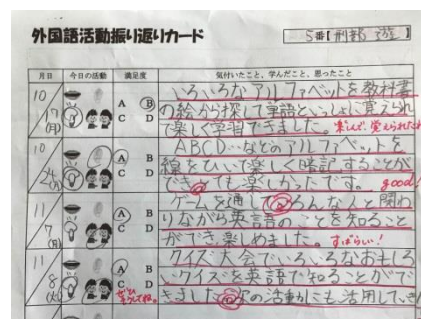 外国語活動振り返りカード
5番【刑部 遊】
月日 今日の活動 満足度 気付いたこと、学んだこと、思ったこと
10/17(月) A B C D
いろいろなアルファベットを教科書
の絵から探して単語といっしょに覚えられ
て楽しく学習できました。楽しんで、覚えられたね
10/24(月) A B C D
ABCD…などのアルファベットを
線をひいて楽しく暗記することが
できとても楽しかったです。good!
11/7(月) A B C D
ゲームを通していろんな人と関わ
りながら英語のことを知ること
ができ、楽しめました。すばらしい!
11/8(火) A B C D
クイズ大会でいろいろなおもしろ
いクイズを英語で知ることがで
きました。次の活動にも活用していき